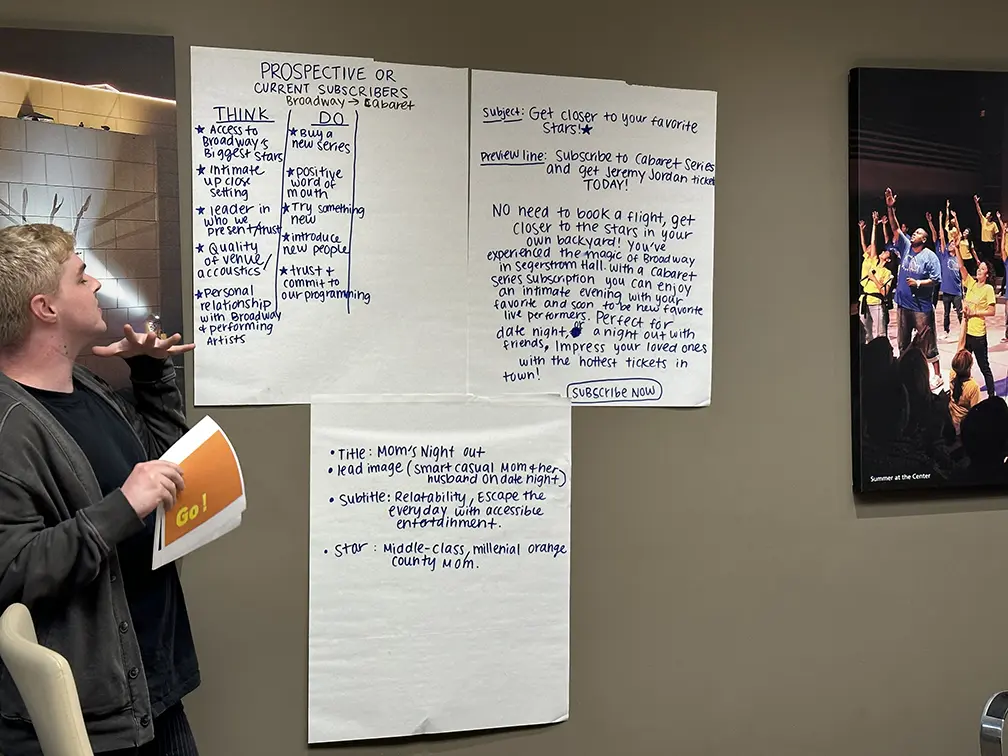 PROSPECTIVE OR
CURRENT SUBSCRIBERS
Broadway → Cabaret
THINK
★ Access to
Broadway's
Biggest Stars
★ Intimate
up close
setting
★ leader in
who we
present/trust
★ Quality
of venue/
accoustics
★ Personal
relationship
with Broadway
& performing
Artists
DO
★ Buy a
new series
★ positive
word of
mouth
★ Try something
new
★ introduce
new people
★ trust +
commit to
our programming
Subject: Get closer to your favorite
Stars!★
Preview line: Subscribe to Cabaret Series
and get Jeremy Jordan tickets
TODAY!
NO need to book a flight, get
closer to the stars in your
own backyard! You've
experienced the magic of Broadway
in Segerstrom Hall. With a Cabaret
Series subscription you can enjoy
an intimate evening with your
favorite and soon to be new favorite
live performers. Perfect for
date night, or a night out with
friends, Impress your loved ones
with the hottest tickets in
town!
SUBSCRIBE NOW
• Title: Mom's Night out
• lead image (smart casual Mom & her
husband on date night)
• Subtitle: Relatability, Escape the
everyday with accessible
entertainment.
• Star: Middle-class, millenial orange
county Mom.
Go!
Summer at the Center